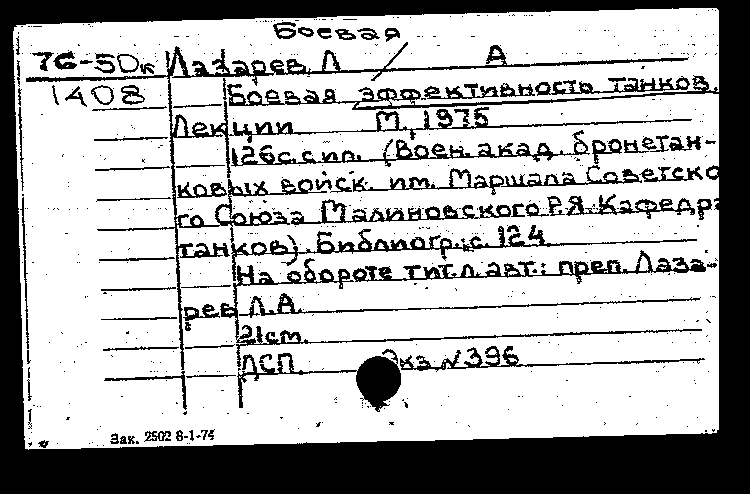 Боевая
76-50к Лазарев, Л А
1408 Боевая эффективность танков.
Лекции М., 1975
126с. с ил. (Воен. акад. бронетан-
ковых войск. им. Маршала Советско
го Союза Малиновского Р.Я. Кафедра
танков). Библиогр.: с. 124
На обороте тит.л. авт.: преп. Лаза-
рев Л.А.
21см.
ДСП. Экз. №396
Зак. 2502 8-1-74